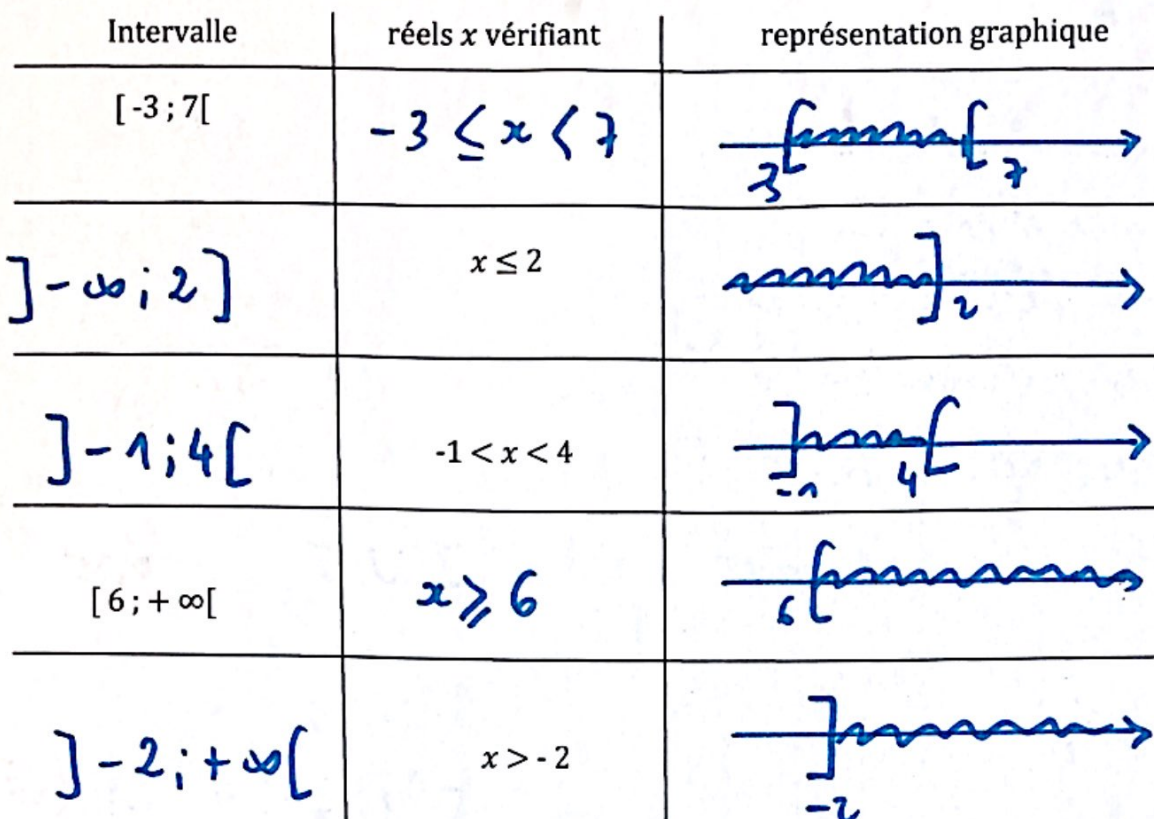 Intervalle réels x vérifiant représentation graphique
[ -3 ; 7[ -3 ≤ x < 7 -3 7
]-∞ ; 2] x ≤ 2 2
]-1 ; 4[ -1 < x < 4 -1 4
[ 6 ; + ∞[ x ⩾ 6 6
]-2 ; +∞[ x > - 2 -2